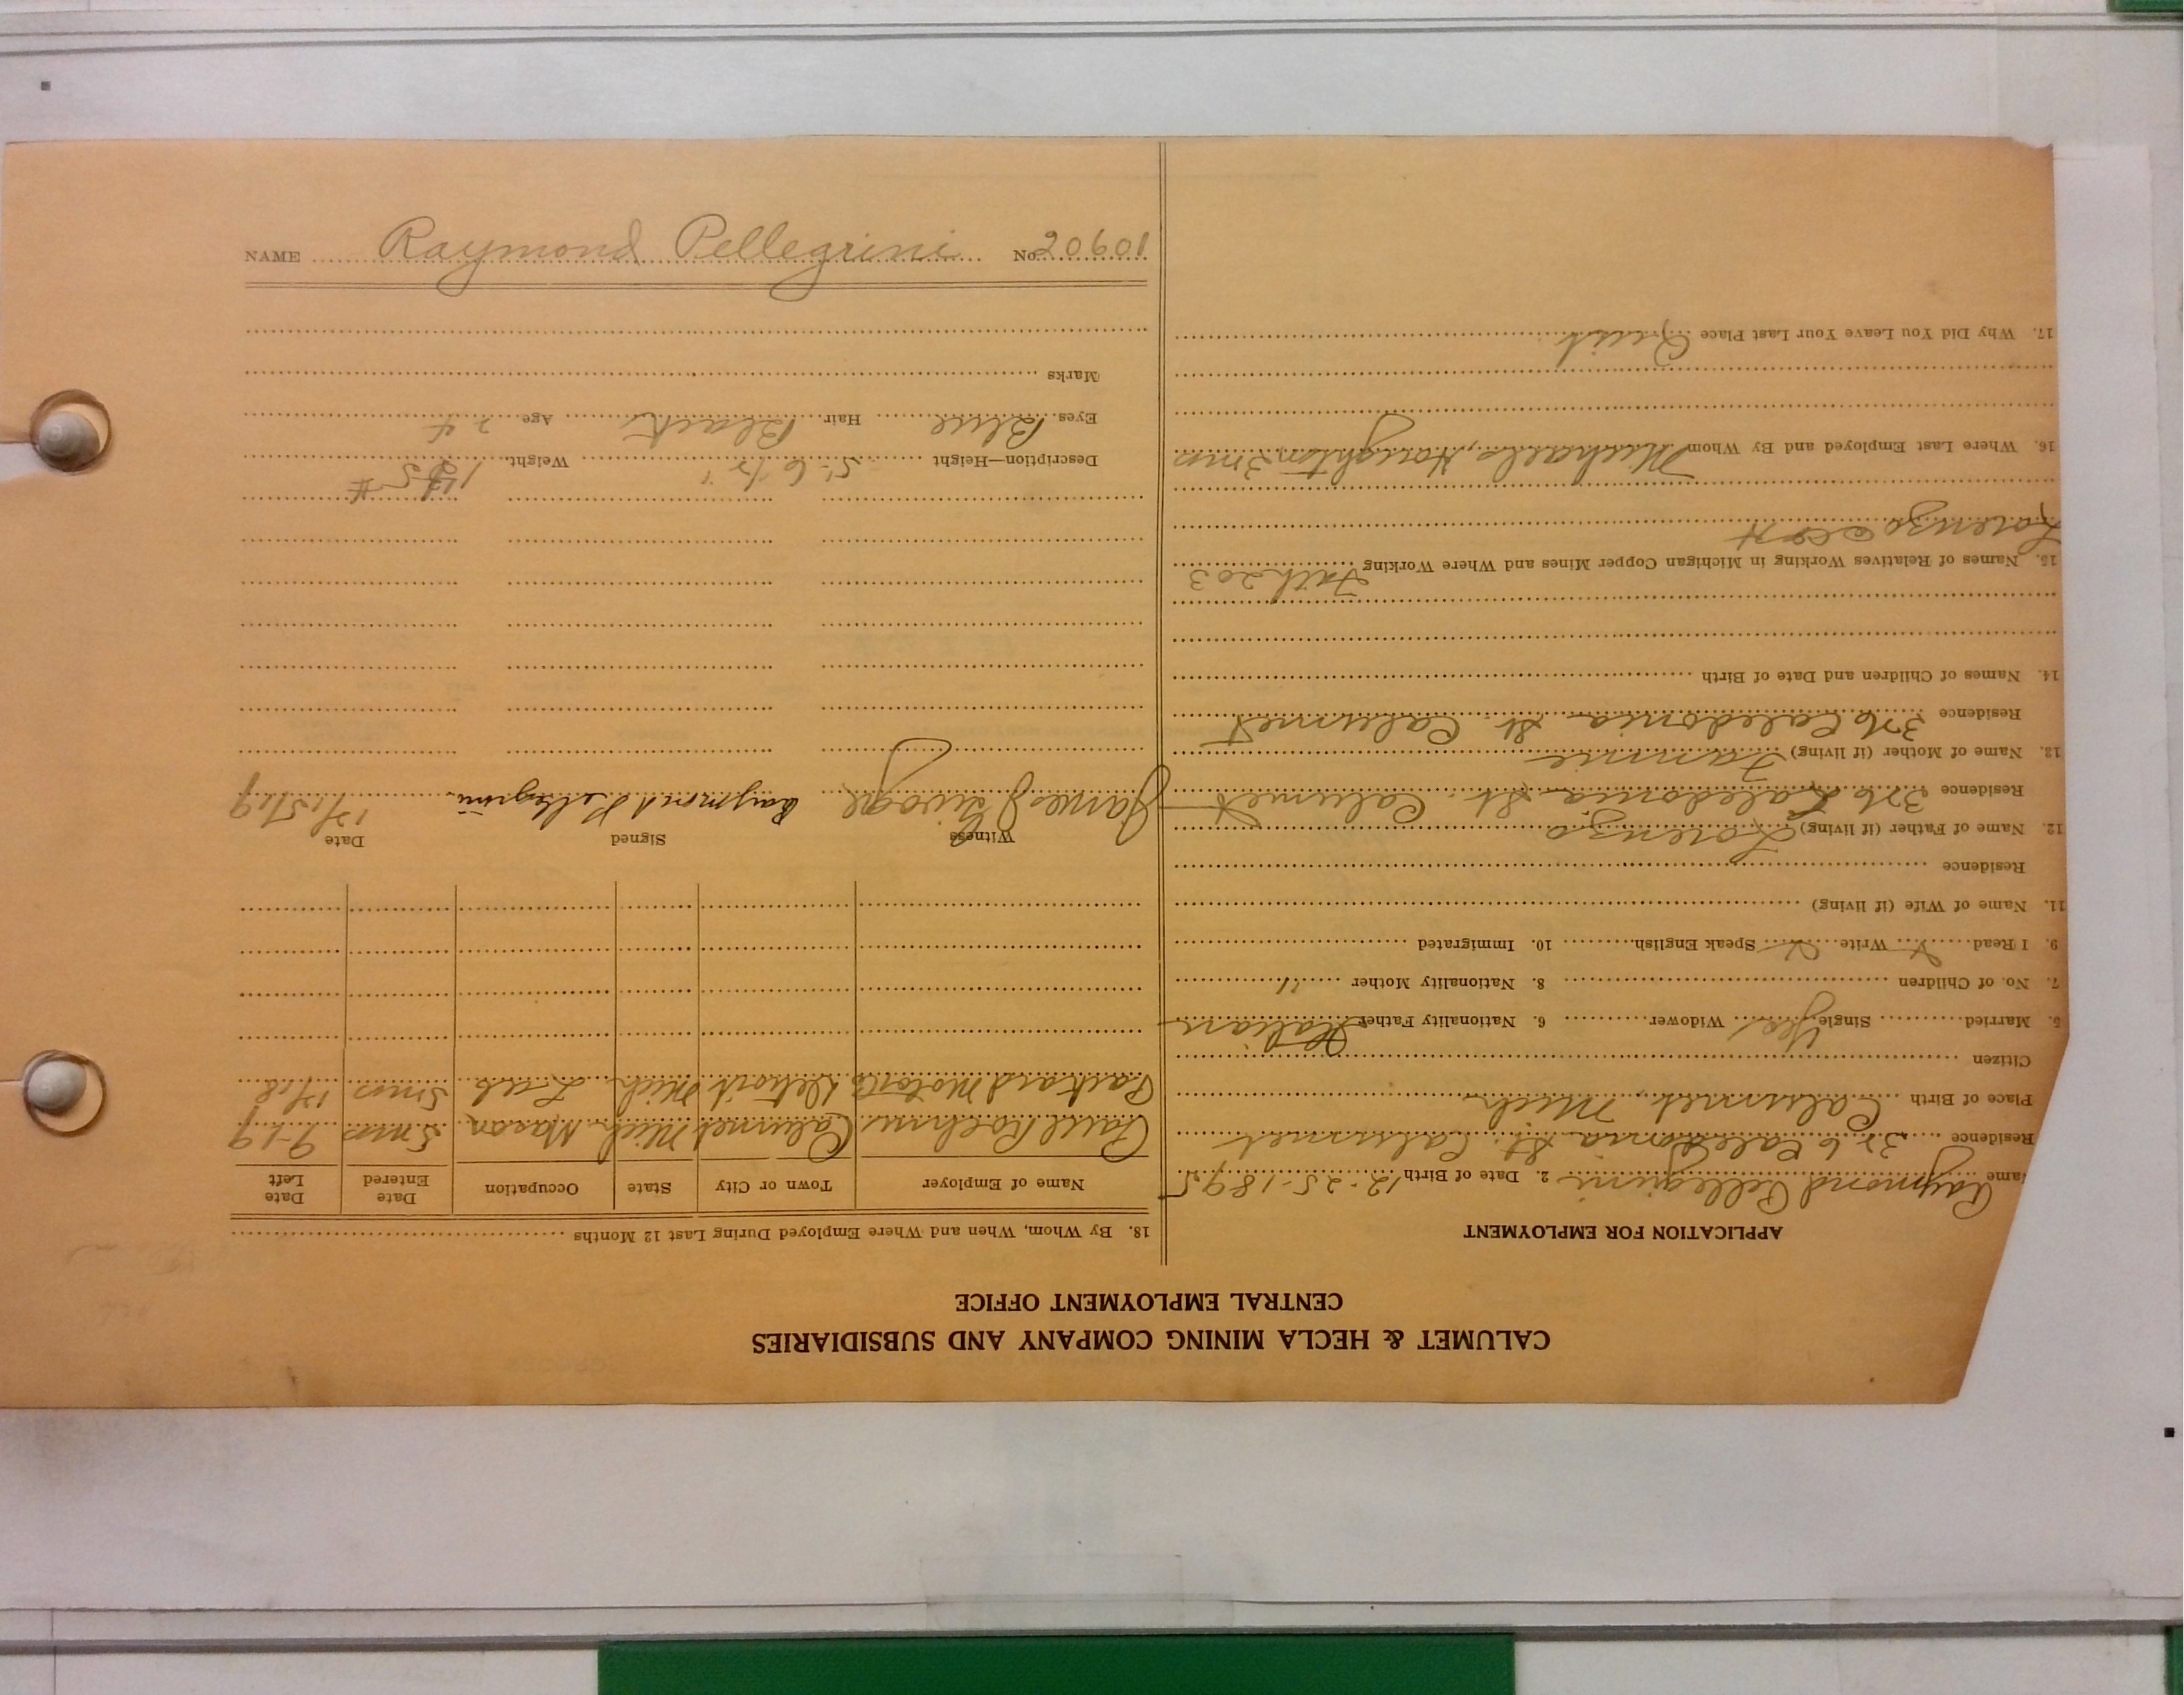 CALUMET & HECLA MINING COMPANY AND SUBSIDIARIES
CENTRAL EMPLOYMENT OFFICE
APPLICATION FOR EMPLOYMENT
ame Raymond Pellegrini 2. Date of Birth 12-25-1895
Residence 326 Caledonia St. Calumet
Place of Birth Calumet, Mich
Citizen
5. Married Single Yes Widower 6. Nationality Father Italian
7. No. of Children 8. Nationality Mother "
9. I Read Write Speak English 10. Immigrated
11. Name of Wife (if living)
Residence
12. Name of Father (if living) Lorenzo
Residence 326 Caledonia St. Calumet
13. Name of Mother (if living) Fannie
Residence 326 Caledonia St. Calumet
14. Names of Children and Date of Birth
15. Names of Relatives Working in Michigan Copper Mines and Where Working Fath 203
Lorenzo C & H
16. Where Last Employed and By Whom Michaels, Houghton, 3 mos
17. Why Did You Leave Your Last Place Quit
18. By Whom, When and Where Employed During Last 12 Months
Name of Employer Town or City State Occupation Date Entered Date Left
Paul Roehm Calumet Mich Mason 3 mos 9-19
Packard Motor Co Detroit Mich Lab 5 mos 12/18
Witness Signed Date
James Raymond Pellegrini 12/15/19
Description—Height 5' 6 1/2" Weight #
Eyes Blue Hair Black Age 24
Marks
NAME Raymond Pellegrini No. 20601